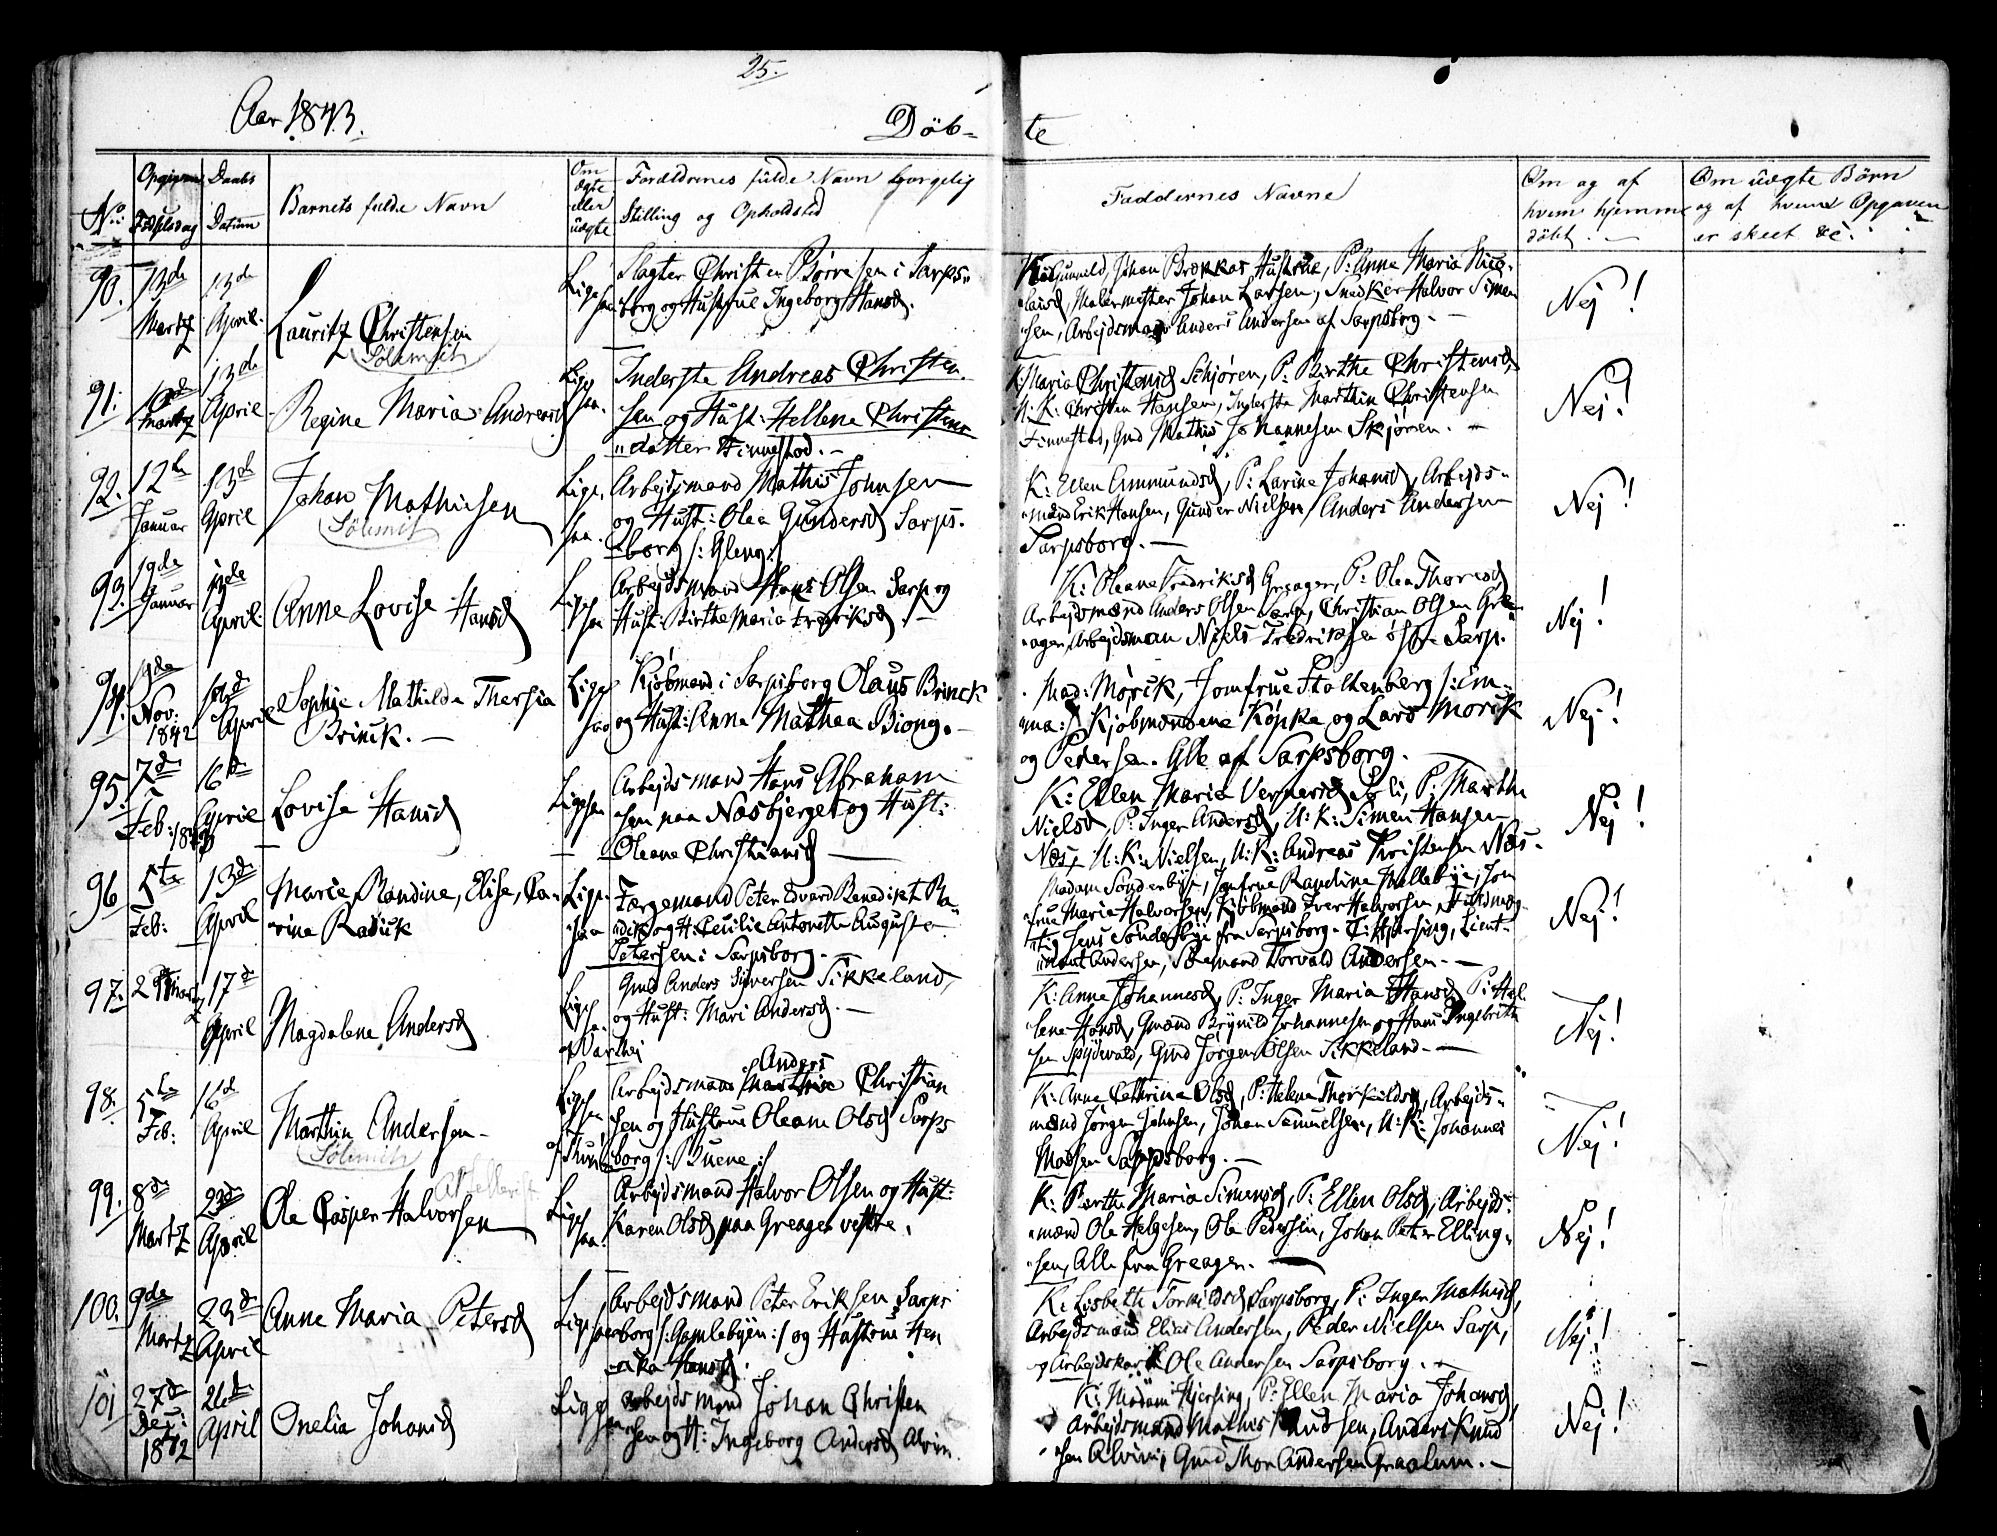 25.
Aar 1843.
Döb-
te
No
Opgiven Fødselsdag
Daabs Datum
Barnets fulde Navn
Om ægte eller uægte
Forældrenes fulde Navn borgelig
Stilling og Opholdsted
Faddernes Navne
Om og af
hvem hjemme
döbt.
Om uægte Börn
og af hvem Opgaven
er skeet &c.
90.
13de Martz
13de April.
Lauritz Christensen
Ligesaa
Slagter Christen Børresen i Sarps-
borg og Hustrue Ingeborg Hansd.
Johan Brekkes Hustrue, P: Anne Maria
Malermester Johan Larsen, Snedker Halvor Simen
sen, Arbejdsmand Anders Andersen af Sarpsborg. -
Nej!
91.
Martz
13de April
Regine Maria Andreasd
Ligesaa.
Inderste Andreas Christen-
sen og Hust: Hellene Christens
datter Finnestad. -
K: Maria Christensd Schjøren, P: Birthe Christensd,
U: K: Christen Hansen, Inderste Marthin Christensen
Finnestad, Gmd Mathis Johannesen Skjøren. -
Nej!
92.
12te Januar
13de April
Johan Mathisen
Ligesaa.
Arbejdsmand Mathis Johnsen
og Hust: Olea Gundersd Sarps-
borg /: Gleng:/
K: Ellen Ammundsd, P: Larine Johansd, Arbejds-
mænd Erik Hansen, Gunder Nielsen, Anders Andersen
Sarpsborg. -
Nej!
93.
19de Januar
April
Anne Lovise Hansd
Ligesaa
Arbejdsmand Hans Olsen Sarp og
Hust: Birthe Maria Fredriksd. -
K: Oleane Fredriksd Greager, P: Olea Thoresd
Arbejdsmænd Anders Olsen Sarp, Christian Olsen Gre-
ager, Arbejdsman Niels Fredriksen østre Sarp.
Nej!
94.
Nov: 1842
April
Sophie Mathilda Thersia
Brinck. -
Ligesaa
Kjøbmand i Sarpsborg Olaus Brinck
og Hust: Anna Mathea Biong. -
Mad: Mørck, Jomfrue Stoltenberg /: Em-
ma:/ Kjøbmændene Köpke og Lars Mørck
og Pedersen. Alle af Sarpsborg. -
Nej!
95.
7de Feb: 1843
16de April
Lovise Hansd
Ligesaa
Arbejdsmand Hans Abraham
sen paa Næsbjerget og Hust:
Oleane Christiansd
K: Ellen Maria Vernersd Soli, P: Marthe
Nielsd, P: Inger Andersd, U: K: Simen Hansen
Næs, U: K: Nielsen, U: K: Andreas Christensen Næs-
Nej!
96
5te Feb:
13de April
Marie, Randine, Elise, Ca-
rina Radick
Ligesaa
Færgemand Peter Edvard Benedikt Ra-
dik og H: Cecilie Antonette Auguste
Petersen i Sarpsborg. -
Madam Sønderbÿe, Jomfrue Randine Hallebÿe, Jom
frue Maria Halvorsen, Kjøbmand Iver Halvorsen,
Jens Sønderbÿe fra Sarpsborg. Hjersing, Lieut-
nant Andersen, Sømand Torvald Andersen. -
Nej!
97.
17de April
Magdalene Andersd
Ligesaa.
Gmd Anders Syversen Tikkeland,
og Hust: Mari Andersd. -
K: Anne Johannesd, P: Inger Maria Hansd, P: Hel-
lene Hansd, Gmænd Brynild Johannesen og Hans Ingebrigt
sen Spydevald, Gmd Jørgen Olsen Tikkeland -
Nej!
98.
5te Feb:
16de April
Marthin Andersen -
Ligesaa
Anders
Arbejdsmand Christian
sen og Hustrue Oleane Olsd Sarps
borg
K: Anne Cathrina Olsd, P: Helene Thorkildsd, Arbejds-
mænd Jørgen Johnsen, Johan Samuelsen, U: K: Johannes
Madsen Sarpsborg. -
Nej!
99.
8de Martz
23de April
Ole Casper Halvorsen
Ligesaa.
Arbejdsmand Halvor Olsen og Hust:
Karen Olsd paa Greager vestre.
K: Birthe Maria Simensd, P: Ellen Olsd, Arbejds-
mænd Ole Helgesen, Ole Pedersen, Johan Peter Elling-
sen, Alle fra Greager. -
Nej!
100.
9de Martz
23de April
Anne Maria Petersd
Ligesaa
Arbejdsmand Peter Eriksen Sarps
borg /: Gamlebyen:/ og Hustrue Hen
rika Hansd.
K: Lisbeth Torkildsd Sarpsborg, P: Inger Mathisd,
Arbejdsmænd Elias Andersen, Peder Nielsen Sarp,
og Arbejdskarl Ole Andersen Sarpsborg. -
Nej!
101
27de Dec: 1842
26de April
Onelia Johansd
Ligesaa
Arbejdsmand Johan Christen
sen og H: Ingeborg Andersd Alvim.
K: Madam Hjersing, P: Ellen Maria Johansd,
Arbejdsmand Mathis Knudsen, Anders Knud
sen Alvim, Gmd Thor Andersen Graalum. -
Nej!